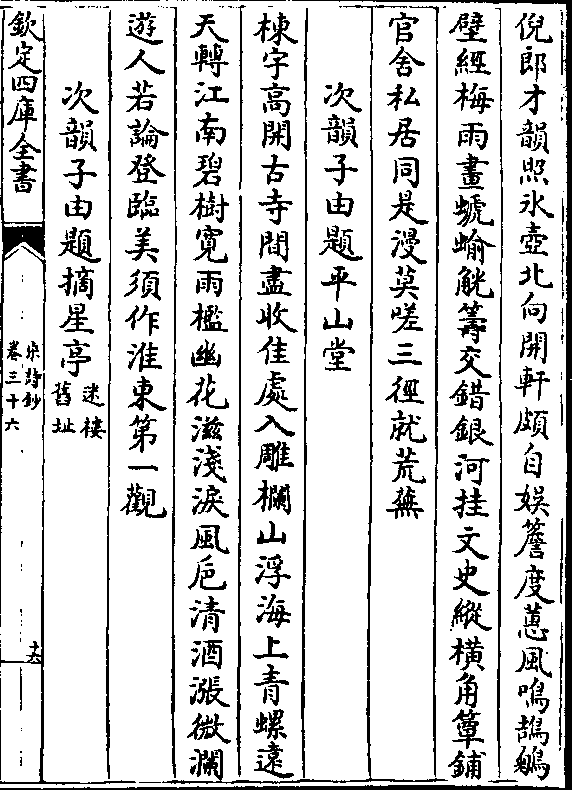 倪郎才韻照氷壺北向開軒頗自娛簷度蕙風鳴鴶鵴
壁經梅雨畫螔蝓觥籌交錯銀河挂文史縱横角簟鋪
官舍私居同是漫莫嗟三徑就荒蕪
次韻子由題平山堂
棟宇高開古寺間盡收佳處入雕欄山浮海上青螺遠
天轉江南碧樹寛雨檻幽花滋淺淚風巵清酒漲微瀾
遊人若論登臨美須作淮東第一觀
次韻子由題摘星亭
迷樓
舊址
欽定四庫全書
宋詩鈔
卷三十六
十六